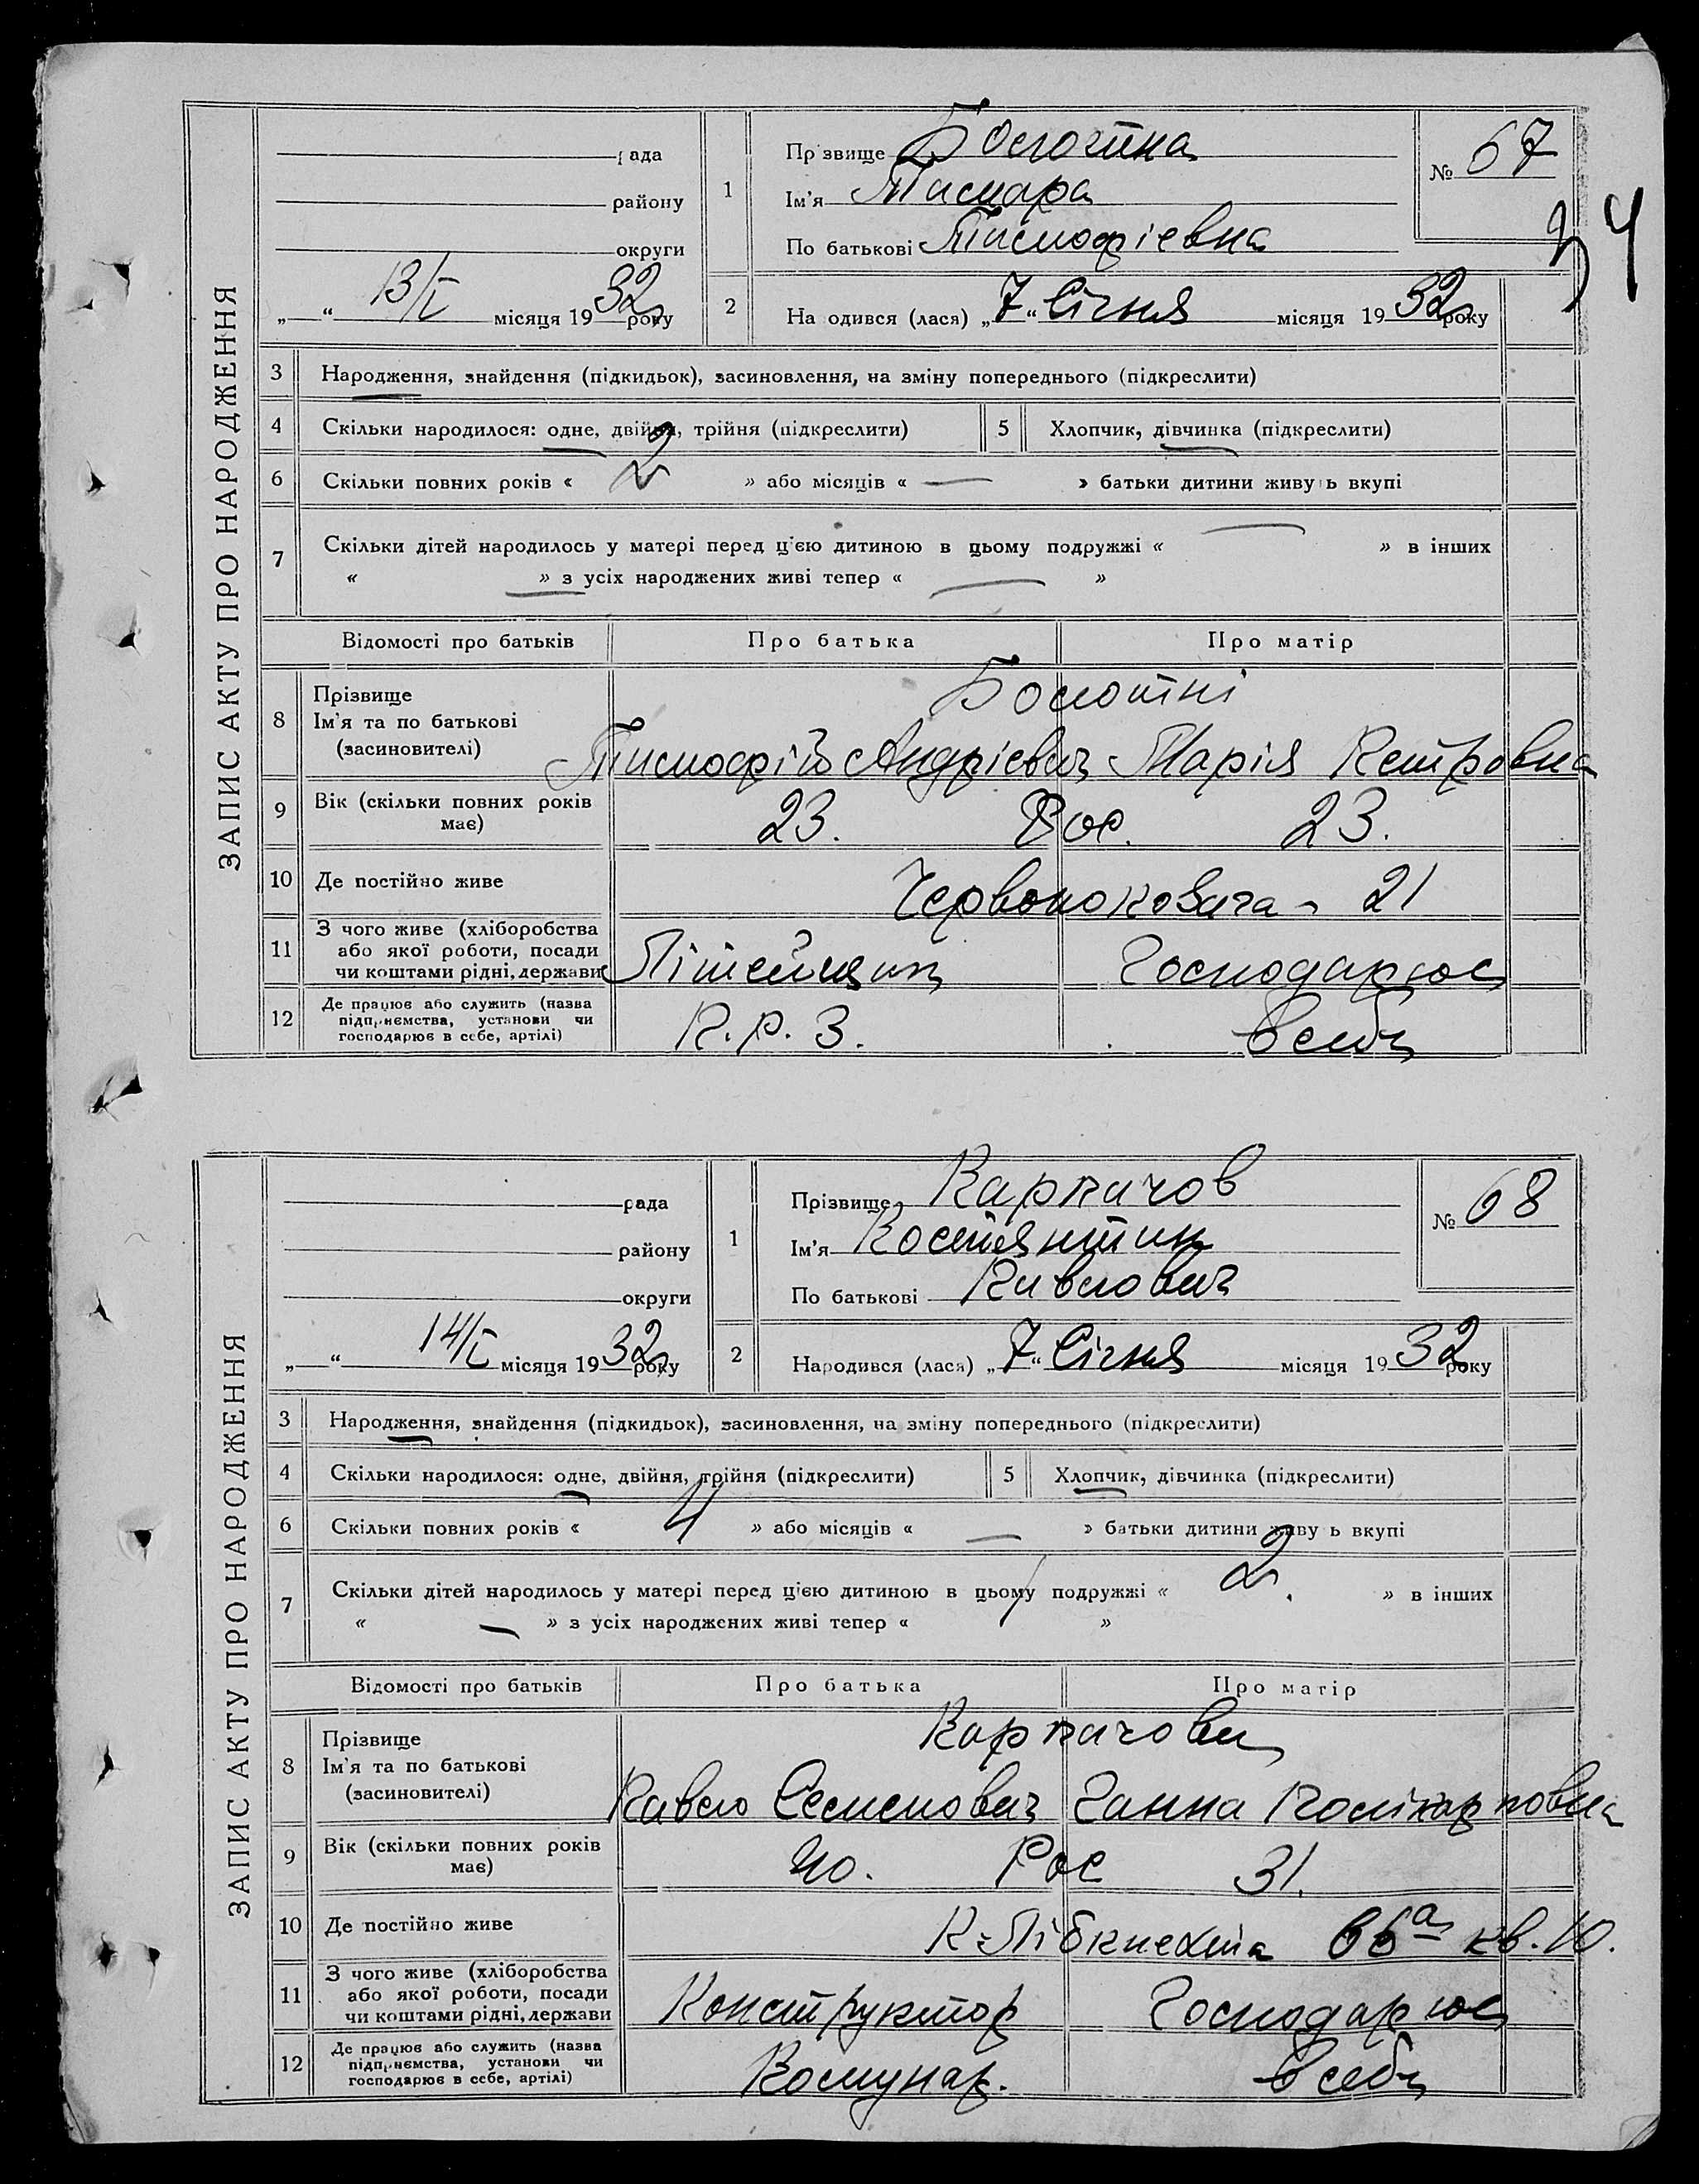 ЗАПИС АКТУ ПРО НАРОДЖЕННЯ
рада
району
округи
„ “ 13/I місяця 1932 року
1 Прізвище Болотна
Ім'я Тамара
По батькові Тимофієвна
№ 67
34
2 На одився (лася) „7“ Січня місяця 1932 року
3 Народження, знайдення (підкидьок), засиновлення, на зміну попереднього (підкреслити)
4 Скільки народилося: одне, двійня, трійня (підкреслити) 5 Хлопчик, дівчинка (підкреслити)
6 Скільки повних років « 2 » або місяців « — » батьки дитини живуть вкупі
7 Скільки дітей народилось у матері перед цією дитиною в цьому подружжі « — » в інших
« — » з усіх народжених живі тепер « — »
Відомості про батьків Про батька Про матір
8 Прізвище Ім'я та по батькові (засиновителі) Болотні
Тимофій Андрієвич Марія Петровна
9 Вік (скільки повних років має) 23. Рос. 23.
10 Де постійно живе 21
11 З чого живе (хліборобства або якої роботи, посади чи коштами рідні, держави Літейщик Господарює
12 Де працює або служить (назва підприємства, установи чи господарює в себе, артілі) П.Р.З. в себе
ЗАПИС АКТУ ПРО НАРОДЖЕННЯ
рада
району
округи
„ “ 14/I місяця 1932 року
1 Прізвище Карпачов
Ім'я Костянтин
По батькові Павлович
№ 68
2 Народився (лася) „7“ Січня місяця 1932 року
3 Народження, знайдення (підкидьок), засиновлення, на зміну попереднього (підкреслити)
4 Скільки народилося: одне, двійня, трійня (підкреслити) 5 Хлопчик, дівчинка (підкреслити)
6 Скільки повних років « 4 » або місяців « — » батьки дитини живу ь вкупі
7 Скільки дітей народилось у матері перед цією дитиною в цьому подружжі « 2. » в інших
« — » з усіх народжених живі тепер « 1 »
Відомості про батьків Про батька Про матір
8 Прізвище Ім'я та по батькові (засиновителі) Карпачови
Павло Семенович Ганна Полікарповна
9 Вік (скільки повних років має) 40. Рос 31.
10 Де постійно живе К-Лібкнехта 66а кв. 10.
11 З чого живе (хліборобства або якої роботи, посади чи коштами рідні, держави Конструктор Господарює
12 Де працює або служить (назва підприємства, установи чи господарює в себе, артілі) Комунар. в себе